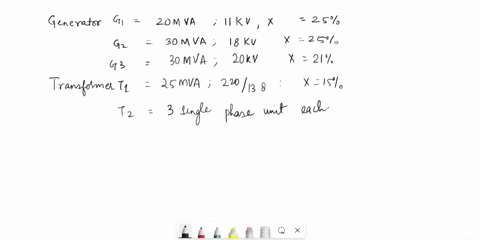 Generator G1 = 20 MVA ; 11 KV, X = 25%
G2 = 30 MVA ; 18 KV X = 25%
G3 = 30 MVA ; 20KV X = 21%
Transformer T1 = 25 MVA ; 220/13 8 : X = 15%
T2 = 3 single phase unit each